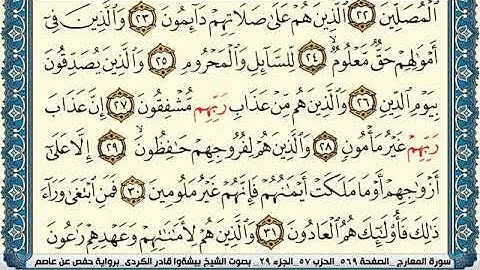 ٱلْمُصَلِّينَ ٢٢ ٱلَّذِينَ هُمْ عَلَىٰ صَلَاتِهِمْ دَآئِمُونَ ٢٣ وَٱلَّذِينَ فِىٓ
أَمْوَٰلِهِمْ حَقٌّ مَّعْلُومٌ ٢٤ لِّلسَّآئِلِ وَٱلْمَحْرُومِ ٢٥ وَٱلَّذِينَ يُصَدِّقُونَ
بِيَوْمِ ٱلدِّينِ ٢٦ وَٱلَّذِينَ هُم مِّنْ عَذَابِ رَبِّهِم مُّشْفِقُونَ ٢٧ إِنَّ عَذَابَ
رَبِّهِمْ غَيْرُ مَأْمُونٍ ٢٨ وَٱلَّذِينَ هُمْ لِفُرُوجِهِمْ حَٰفِظُونَ ٢٩ إِلَّا عَلَىٰٓ
أَزْوَٰجِهِمْ أَوْ مَا مَلَكَتْ أَيْمَٰنُهُمْ فَإِنَّهُمْ غَيْرُ مَلُومِينَ ٣٠ فَمَنِ ٱبْتَغَىٰ وَرَآءَ
ذَٰلِكَ فَأُو۟لَٰٓئِكَ هُمُ ٱلْعَادُونَ ٣١ وَٱلَّذِينَ هُمْ لِأَمَٰنَٰتِهِمْ وَعَهْدِهِمْ رَٰعُونَ
سورة المعارج _ الصفحة ٥٦٩ _ الحزب ٥٧ _ الجزء ٢٩ _ بصوت الشيخ بيشةوا قادر الكردى _ برواية حفص عن عاصم